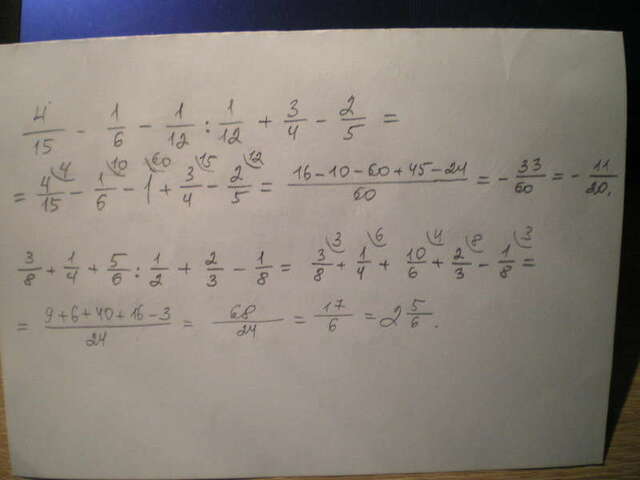 4/15 - 1/6 - 1/12 : 1/12 + 3/4 - 2/5 =
= 4/15 (4 - 1/6 (10 - 1 (60 + 3/4 (15 - 2/5 (12 = 16-10-60+45-24/60 = - 33/60 = - 11/20.
3/8 + 1/4 + 5/6 : 1/2 + 2/3 - 1/8 = 3/8 (3 + 1/4 (6 + 10/6 (4 + 2/3 (8 - 1/8 (3 =
= 9+6+40+16-3/24 = 68/24 = 17/6 = 2 5/6.